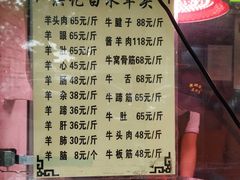 羊头肉65元/斤
羊眼65元/斤
羊肚65元/斤
羊心45元/斤
羊肠48元/斤
羊杂38元/斤
羊蹄35元/斤
羊肝36元/斤
羊肺30元/斤
羊脑8元/个
牛腱子88元/斤
酱羊肉118元/斤
牛窝骨筋68元/斤
牛舌68元/斤
牛蹄筋45元/斤
牛肚65元/斤
牛头肉48元/斤
牛板筋48元/斤